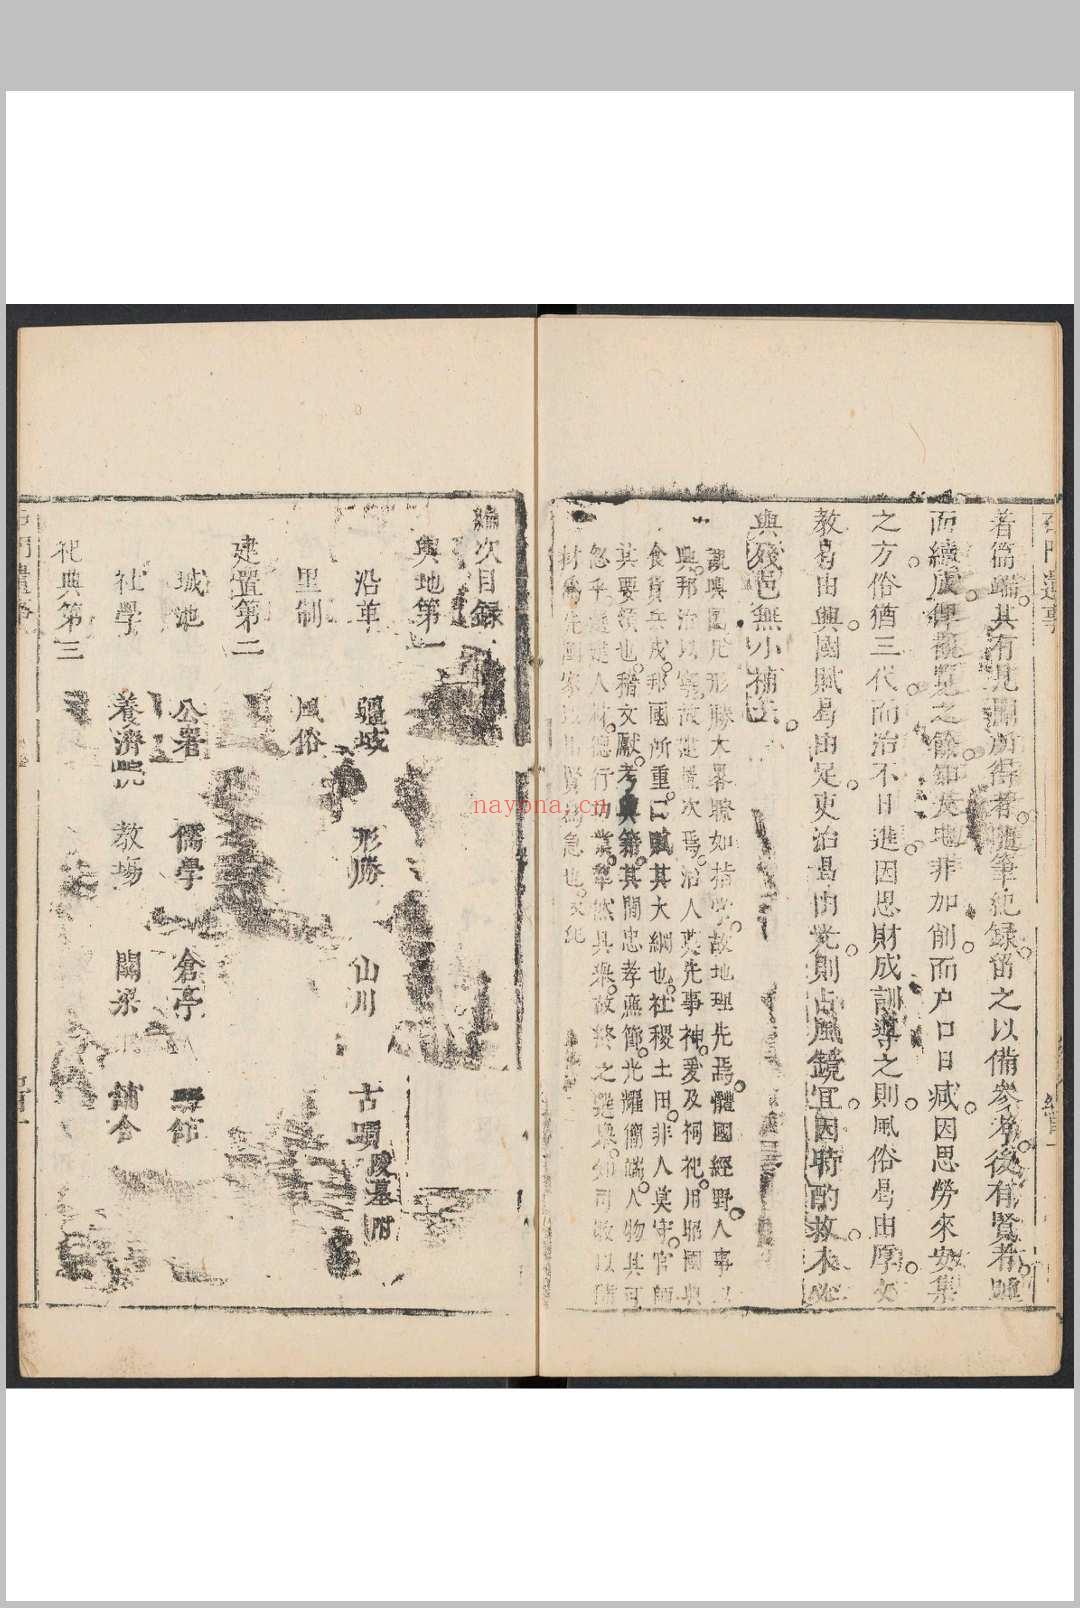 遺事
著篇端其有見聞所得者隨筆紀錄留之以備參考後有賢者踵
而續成俾觀覽之餘知疾非加削而戶口日減因思勞來安集
之方俗猶三代而治不日進因思財成訓導之則風俗曷由厚文
教曷由興國賦曷由足吏治曷由光則占風鏡宜因時酌救未必
與殘邑無小補云
輿圖形勝大畧瞭如指掌故地理先焉體國經野人事以
興邦治以寧故建置次焉治人莫先事神爰及祠祀用昭國典
食貨兵戎邦國所重口賦其大綱也社稷土田非人莫守官師
其要領也稽文獻考典籍其間忠孝廉節光耀簡端人物其可
忽乎人材德行功業犖然具衆故終之選舉
賢為急也
編次目錄
輿地第一
沿革 疆域 形勝 山川 古蹟 陵墓附
里制 風俗
建置第二
城池 公署 儒學 倉亭 館
社學 養濟院 教場 關梁 鋪舍
祀典第三
遺事
nayona.cn